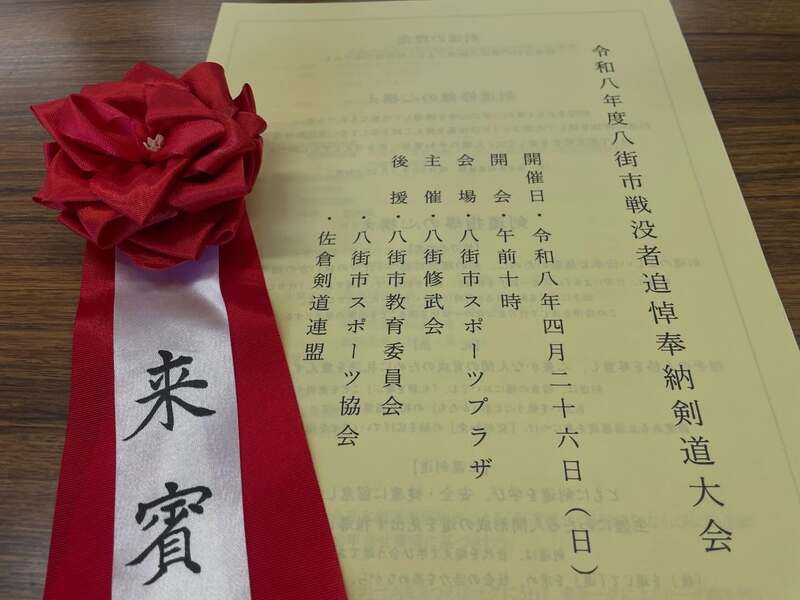 令和八年度八街市戦没者追悼奉納剣道大会
開催日・令和八年四月二十六日(日)
開会・午前十時
会場・八街市スポーツプラザ
主催・八街修武会
後援・八街市教育委員会
・八街市スポーツ協会
・佐倉剣道連盟
来賓